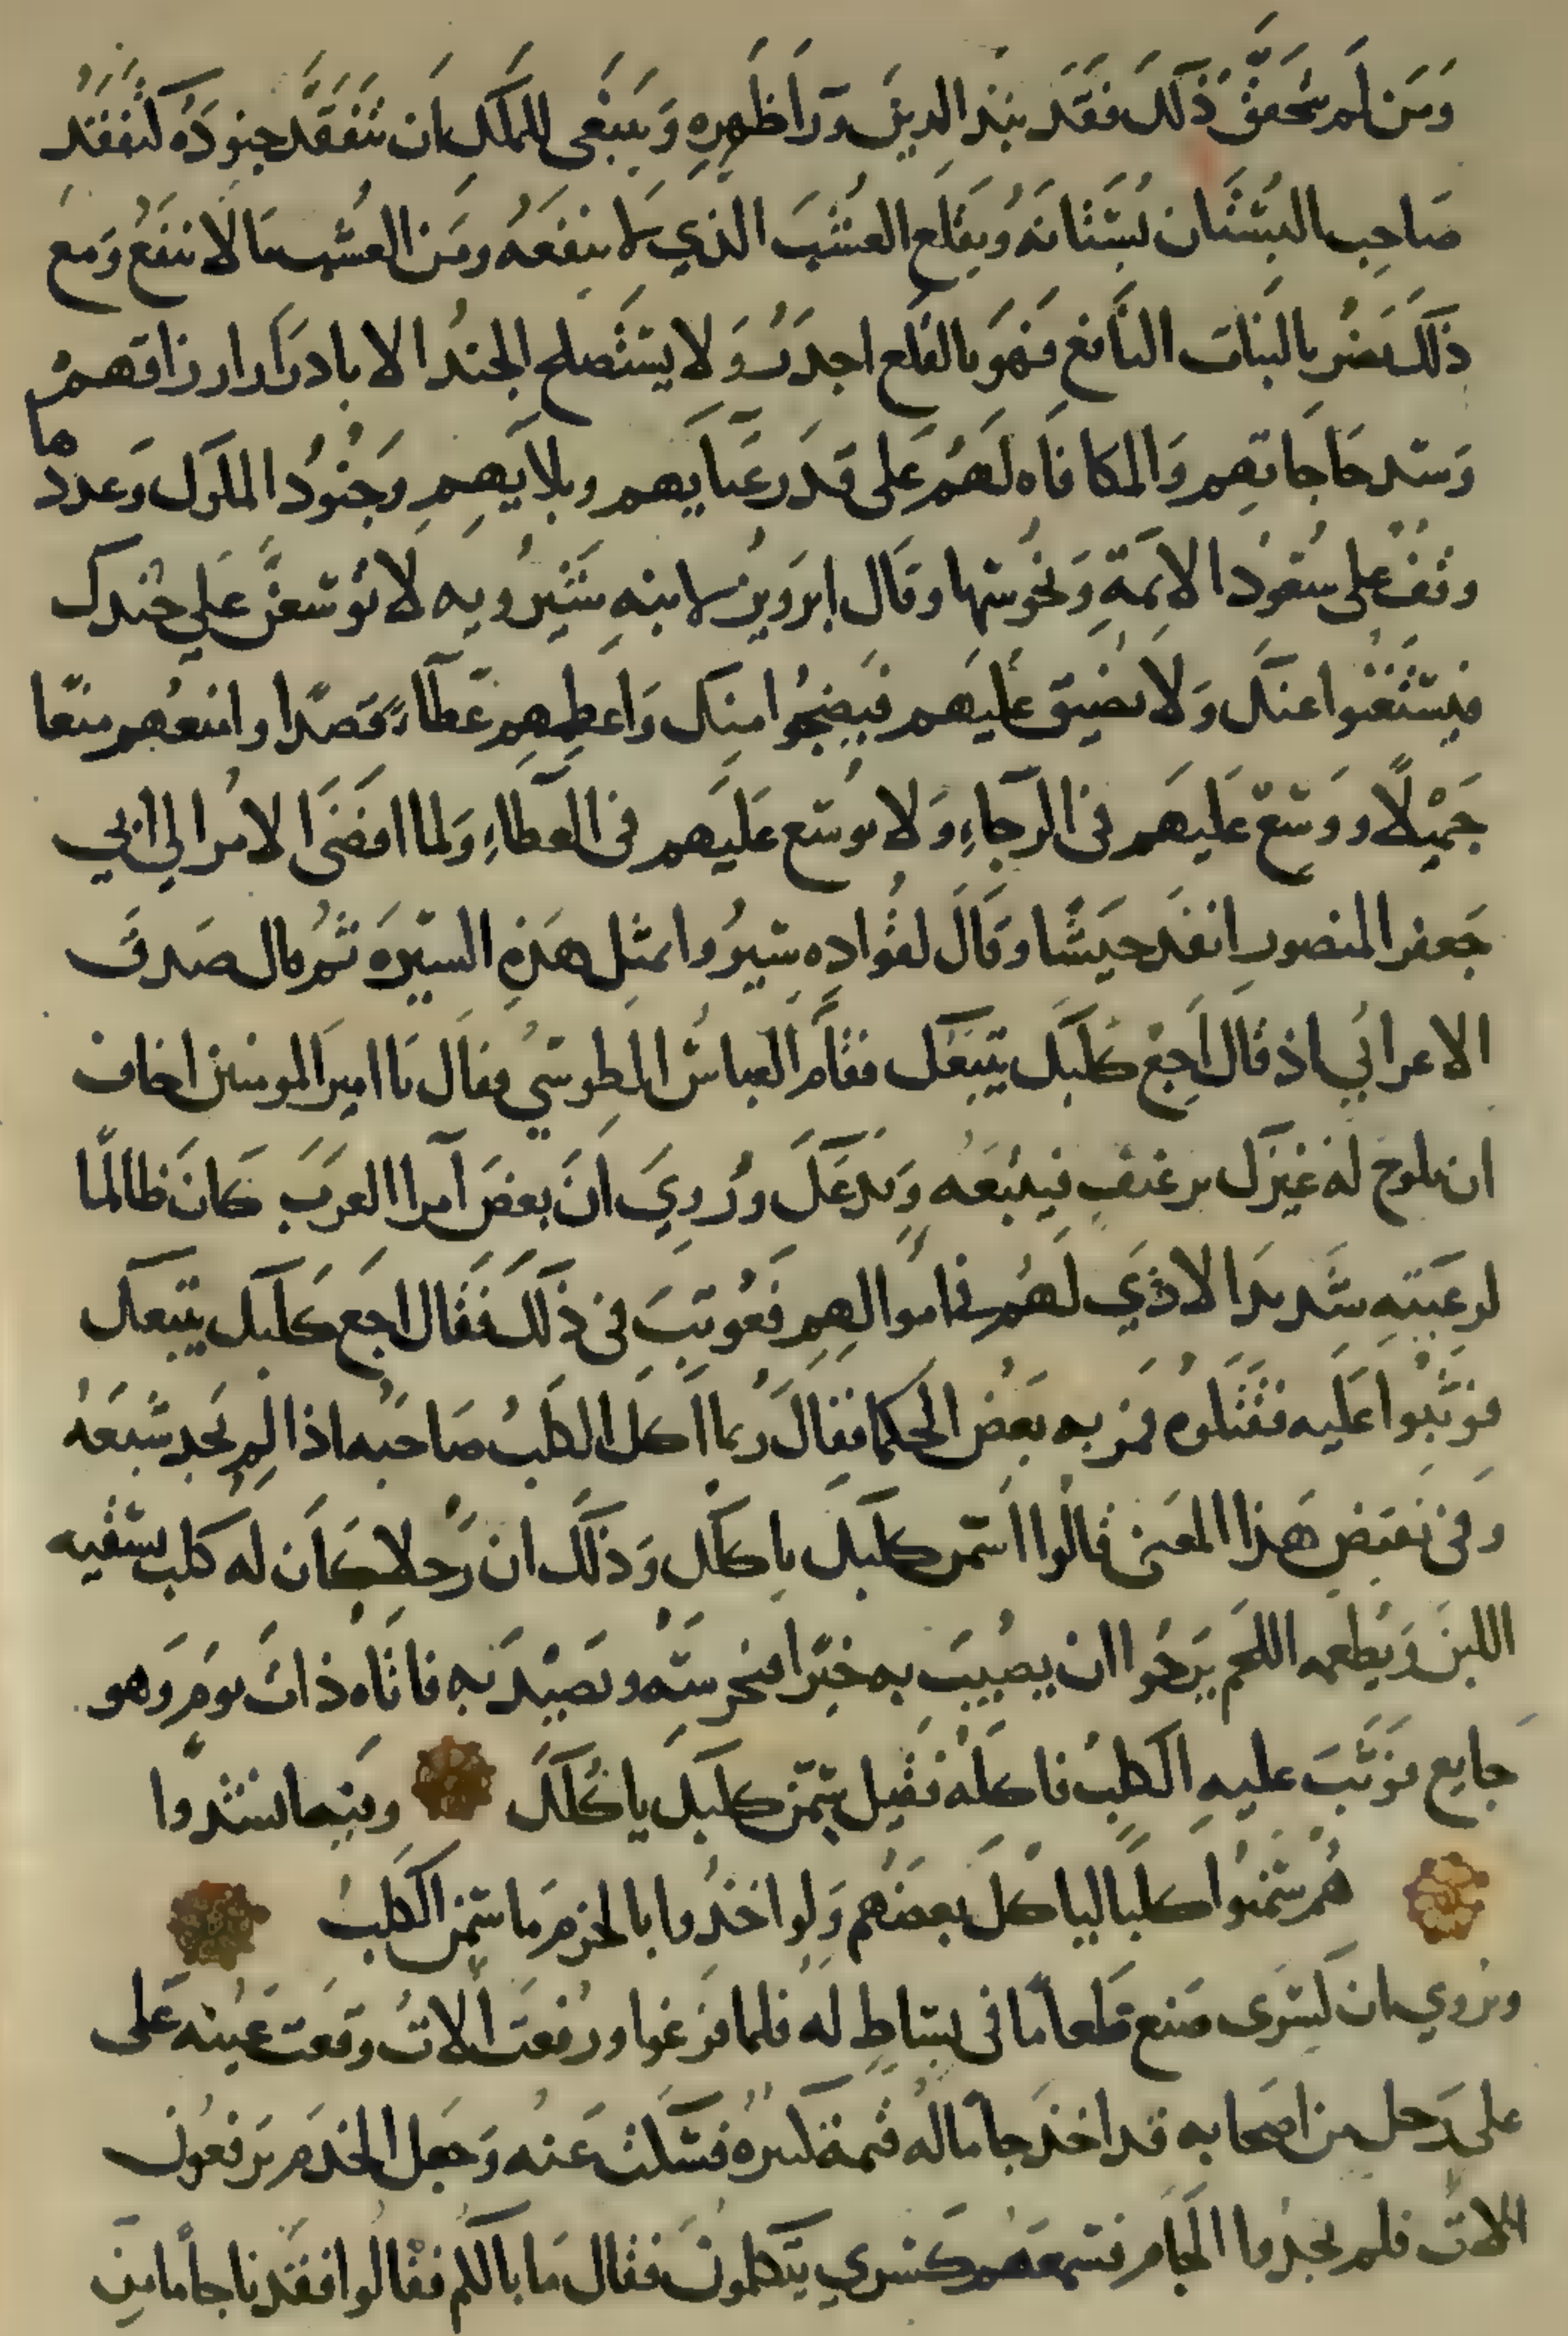 وَمَن لَم يُحَقِّق ذَلكَ فَقَد نبَذ الدينَ وَرَاَ ظَهرِهِ وَيَنبَغى للملَك ان يَتَفَقَّد جنودَهُ كتفقد
صَاحِب البُسْتَان بُسْتَانَهُ وَيقلَع العشبَ الذي لا ينفَعُه ومَن العشب مَا لا ينفَعُ وَمع
ذلَكَ يَضُر بالنبَات النافع فَهوَ بالقلع اجدَرُ وَلا يستَصلح الجندُ الا بادرَار ارزاقهمْ
وَسَد حَاجَاتهِم وَالمكافاه لَهُم عَلى قَدَر عَنايهم وبلايهِم وَجنُودُ الملوك وَعددها
وقفٌ على سُعُود الايمةِ وَنحُوسهَا وقَال ابرَويز لابنهِ شيرُويه لا توسعنَّ عَلى جندك
فيستَغْنُوا عنكَ وَلا تضيق عَليَهم فَيضِجُوا منك وَاعطِهِم عَطَآءً قصَدًا وامنعُهم منعًا
جَميْلاً وَوَسّع عَليهَم فى الرجآءِ وَلا توسَع عَلَيَهم فى العطآءِ وَلما افضَى الامرُ الى ابي
جَعفر المنصور انفَد جيَشًا وقَالَ لقُوادِهِ سيرُوا بمثل هَذِهِ السيرَه ثمُ قال صَدقَ
الاعرابي اذ قال اجِع كَلبَك يتبَعَك فقَام العباسُ الطوسي فقال يَا اميرَ المومنين اخاف
ان يلوح له غيرَك برغيف فيتبعَه وَيدَعَكَ ورُويَ انَ بعضَ اَمرا العرَب كَانَ ظالمًا
لرعَيتهِ شَديدَ الاذَي لَهُم فى امَوالهِم فَعُوتبَ فى ذَلكَ فَقَال اجِع كَلبَك يتبعك
فوثَبوا عَليه فقتَلوُه فمرَ به بعَضُ الحكما فقالَ رُبما اَكل الكلبُ صَاحبَه اذا لم يَجد شبعَهُ
وَفى نقيَضِ هَذا المعَنى قَالوا اسَمن كلبك ياكلك وَذَلَك ان رَجلا كَان له كلب يسقيه
اللبنَ وَيُطعمه اللحَم يَرجُوا ان يصُيبَ به خيرًا فيحرسَهُ ويَصيدَ بهِ فاتَاه ذاتَ يومَ وَهو
جَايع فوَثَبَ عليهِ الكلبُ فاكلَه فقَيل سمّن كلبَك ياكلكَ وَفيه انشدُوا
هُم سَمّنوُا كلبًا لياكلَ بعضَهُم وَلو اخذُوا بالحزم ما سَمّن الكلبُ
ورُوي ان كسَرى صَنع طَعامًا فى بسَاطٍ لهُ فلما فَرغوا ورُفعَت الالاتُ وقَعَت عَينهُ عَلى
على رَجل من اصحَابه قد اخَذ جَامًا لهُ قيمة كبيرهٌ فسَكت عَنهُ وَجعل الخدَم يَرفعُون
الالاتَ فلم يجدُوا الجَام فسمعَهُم كسري يَتكلمونَ فقال مَا بالكم فقالُوا افقَدنا جامًا مِن